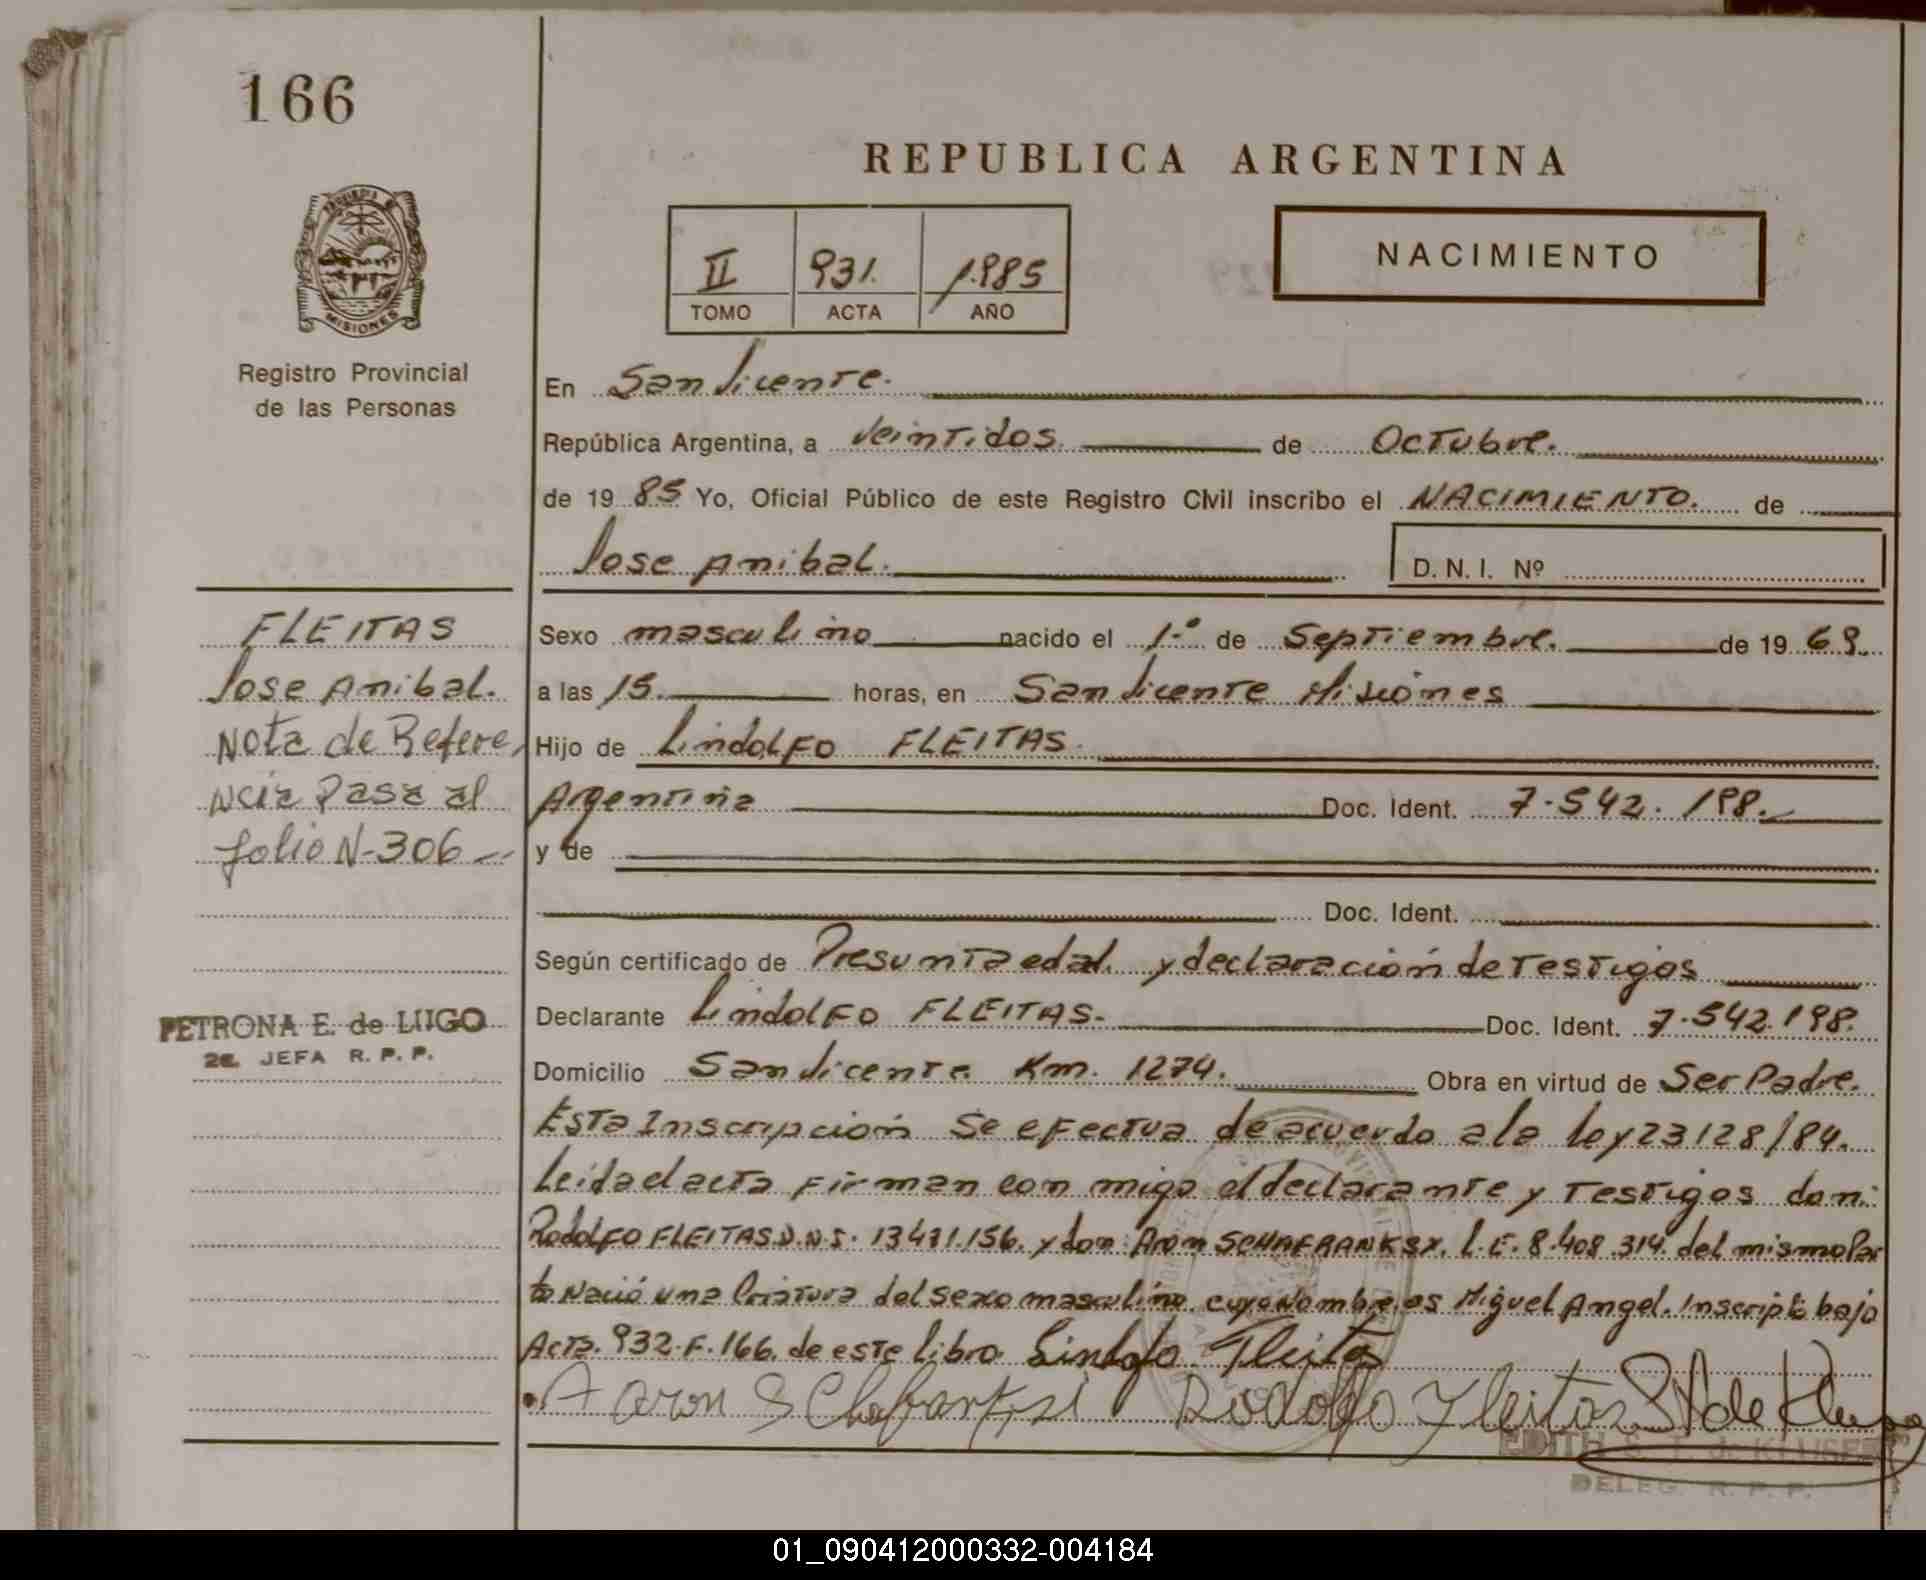 166
REPUBLICA ARGENTINA
II 931. 1.985
TOMO ACTA AÑO
NACIMIENTO
MISIONES
Registro Provincial
de las Personas
En San Vicente.
República Argentina, a Veintidos. de Octubre.
de 19 85 Yo, Oficial Público de este Registro Civil inscribo el NACIMIENTO. de
Jose Anibal. D. N. I. Nº
FLEITAS
Jose Anibal.
Nota de Refere,
Ncia Pasa al
folio N-306
PETRONA E. de LUGO
2a. JEFA R. P. P.
Sexo masculino nacido el 1-º de Septiembre. de 19 69.
a las 15. horas, en San Vicente Misiones
Hijo de Lindolfo FLEITAS.
Argentina Doc. Ident. 7.542.198.
y de
Doc. Ident.
Según certificado de Presunta edad. y declaración de Testigos
Declarante Lindolfo FLEITAS. Doc. Ident. 7.542.198.
Domicilio San Vicente Km. 1274. Obra en virtud de Ser Padre.
Esta Inscripción Se efectua de acuerdo a la ley 23128/84.
Leida el acta Firman con migo el declarante y Testigos don:
Rodolfo FLEITAS D.N.I. 13431.156. y don: Aron L.E. 8.408.314. del mismo Par
to Nació una Criatura del sexo masculino. cuyo Nombre es Miguel Angel. Inscripto bajo
Acta. 932.F.166. de este libro Lindolfo Fleitas
Aaron Rodolfo Fleitas
EDITH
DELEG. R. P. P.
01_090412000332-004184